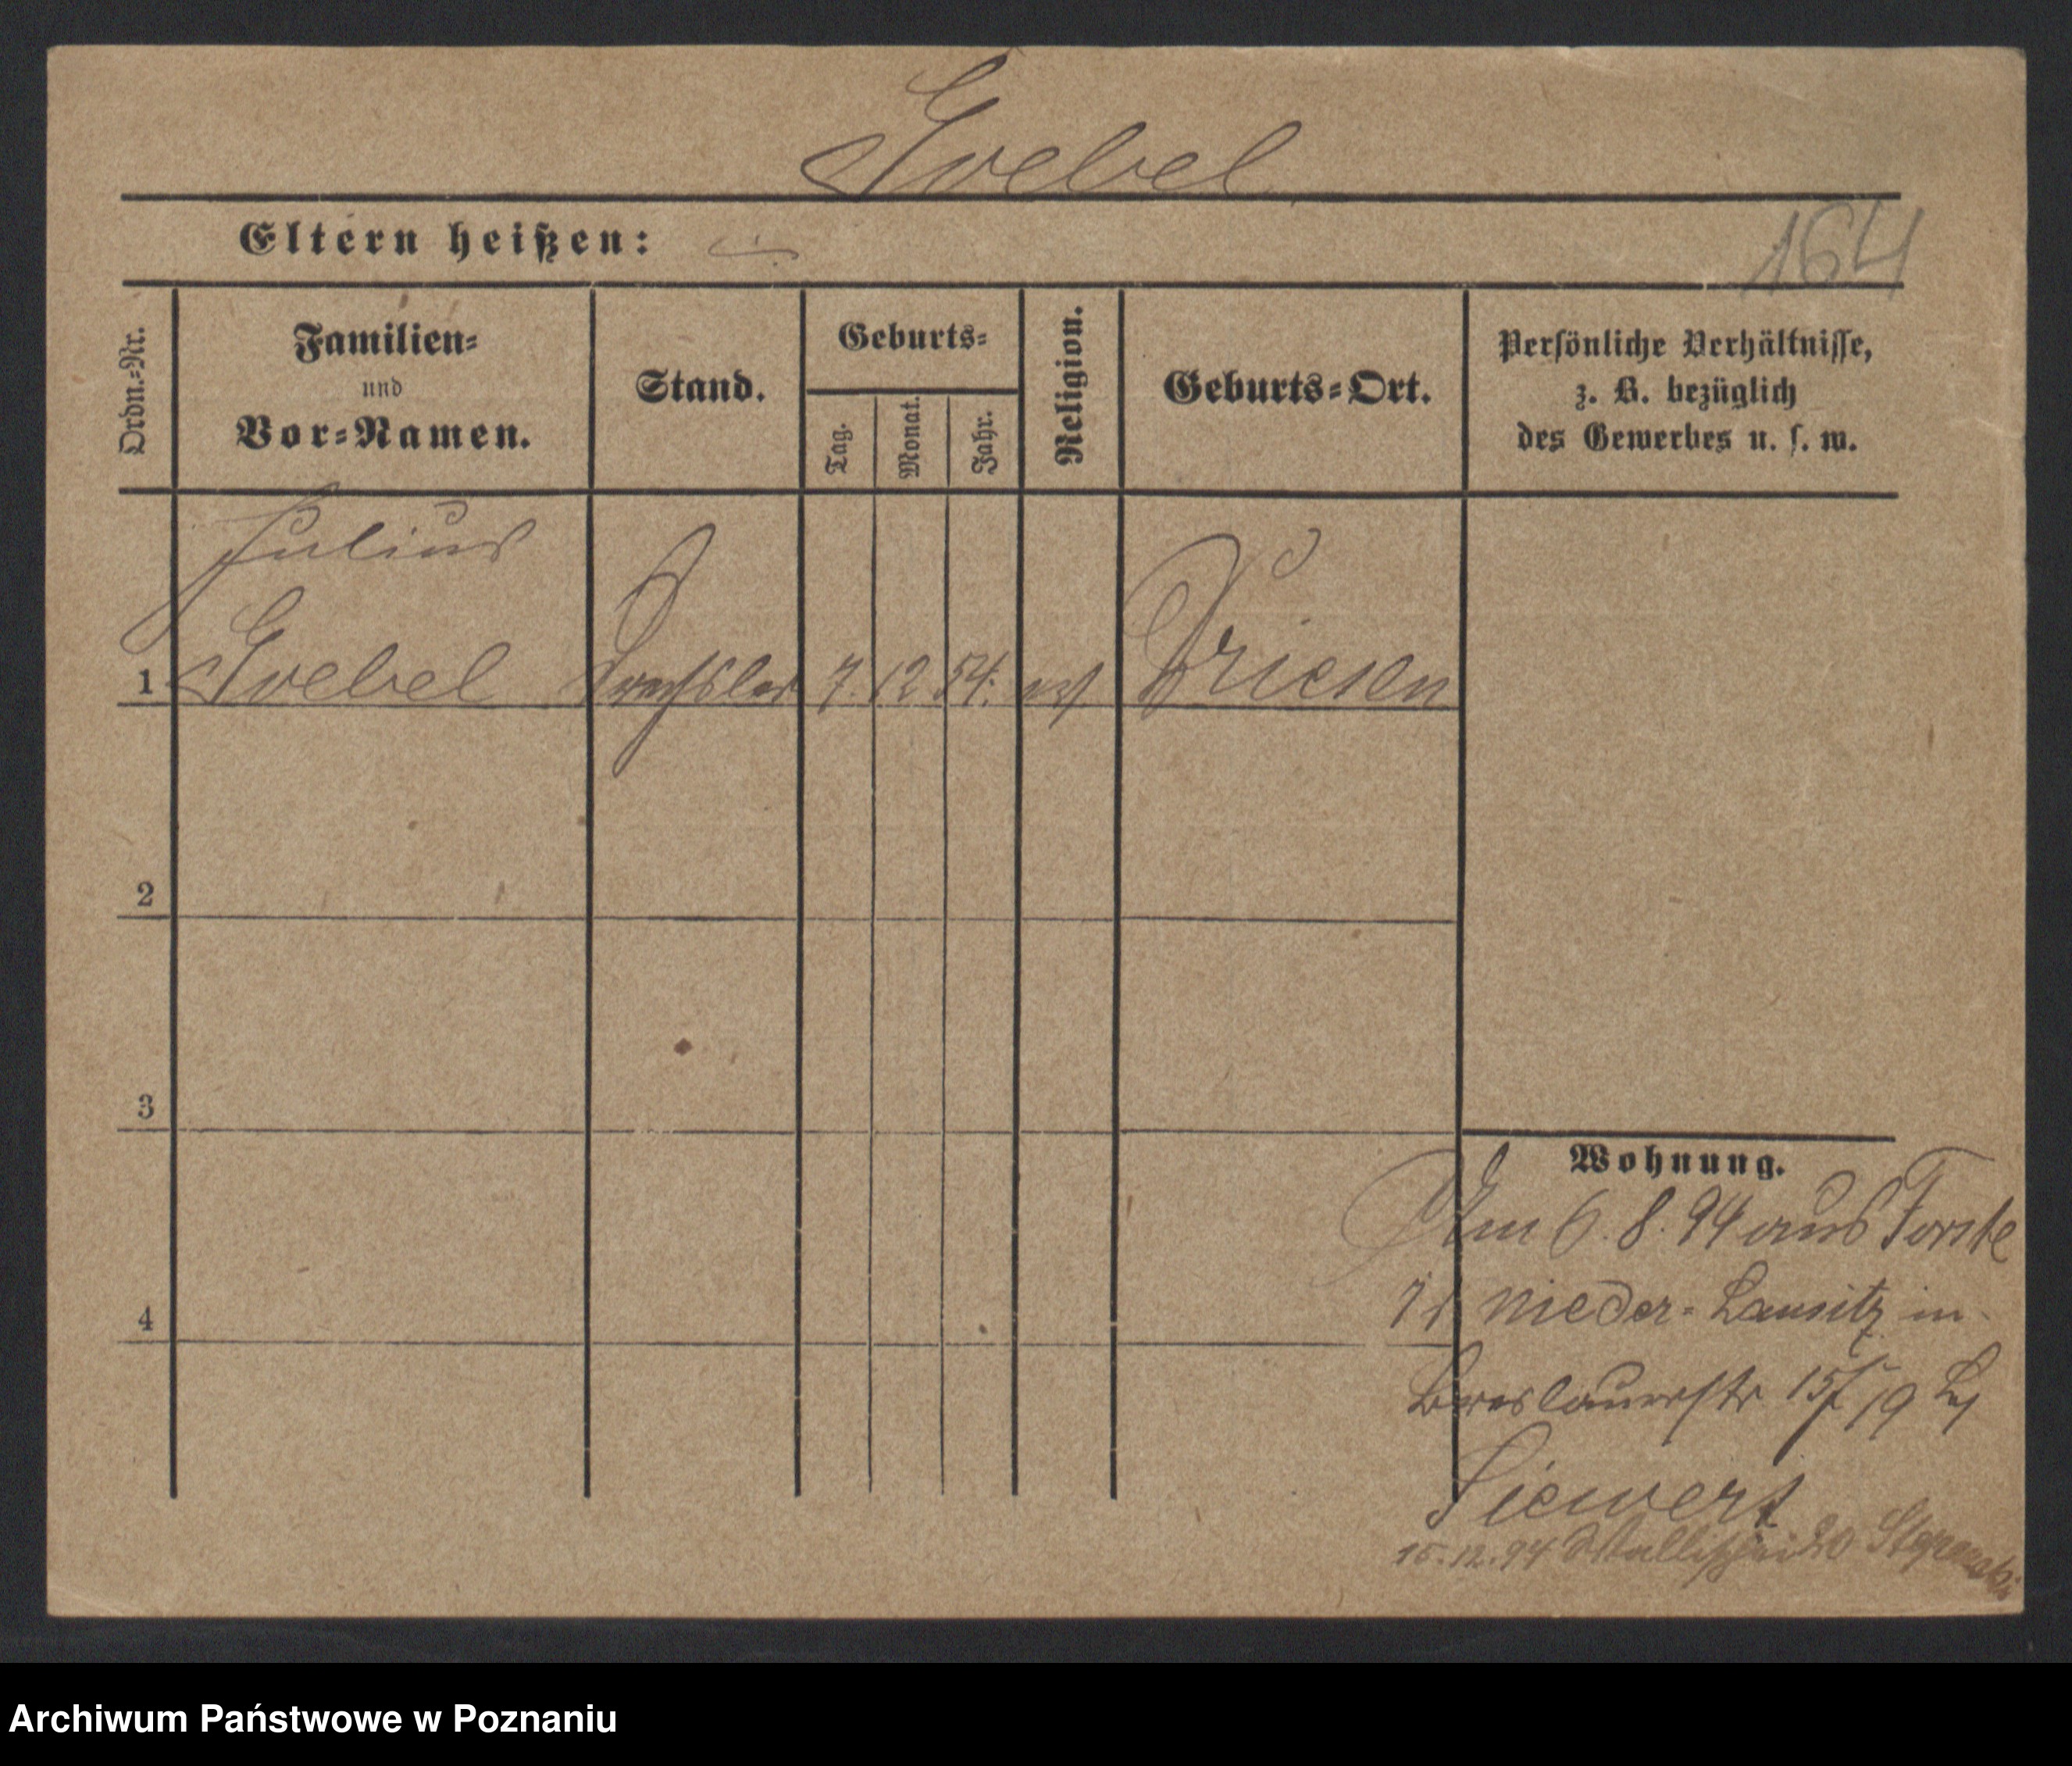 Goebel
Eltern heißen:
164
Ordn.-Nr.
Familien-
und
Vor-Namen.
Stand.
Geburts-
Tag.
Monat.
Jahr.
Religion.
Geburts-Ort.
Persönliche Verhältnisse,
z. B. bezüglich
des Gewerbes u. s. w.
Julius
1 Goebel Drechsler 7. 12 54. ev Driesen
2
3
4
Wohnung.
Am 6. 8. 94 aus Forste
Nieder-Lausitz in
Breslauerstr 15/19 
Siewert
15.12.94 Wallischei 20
Archiwum Państwowe w Poznaniu